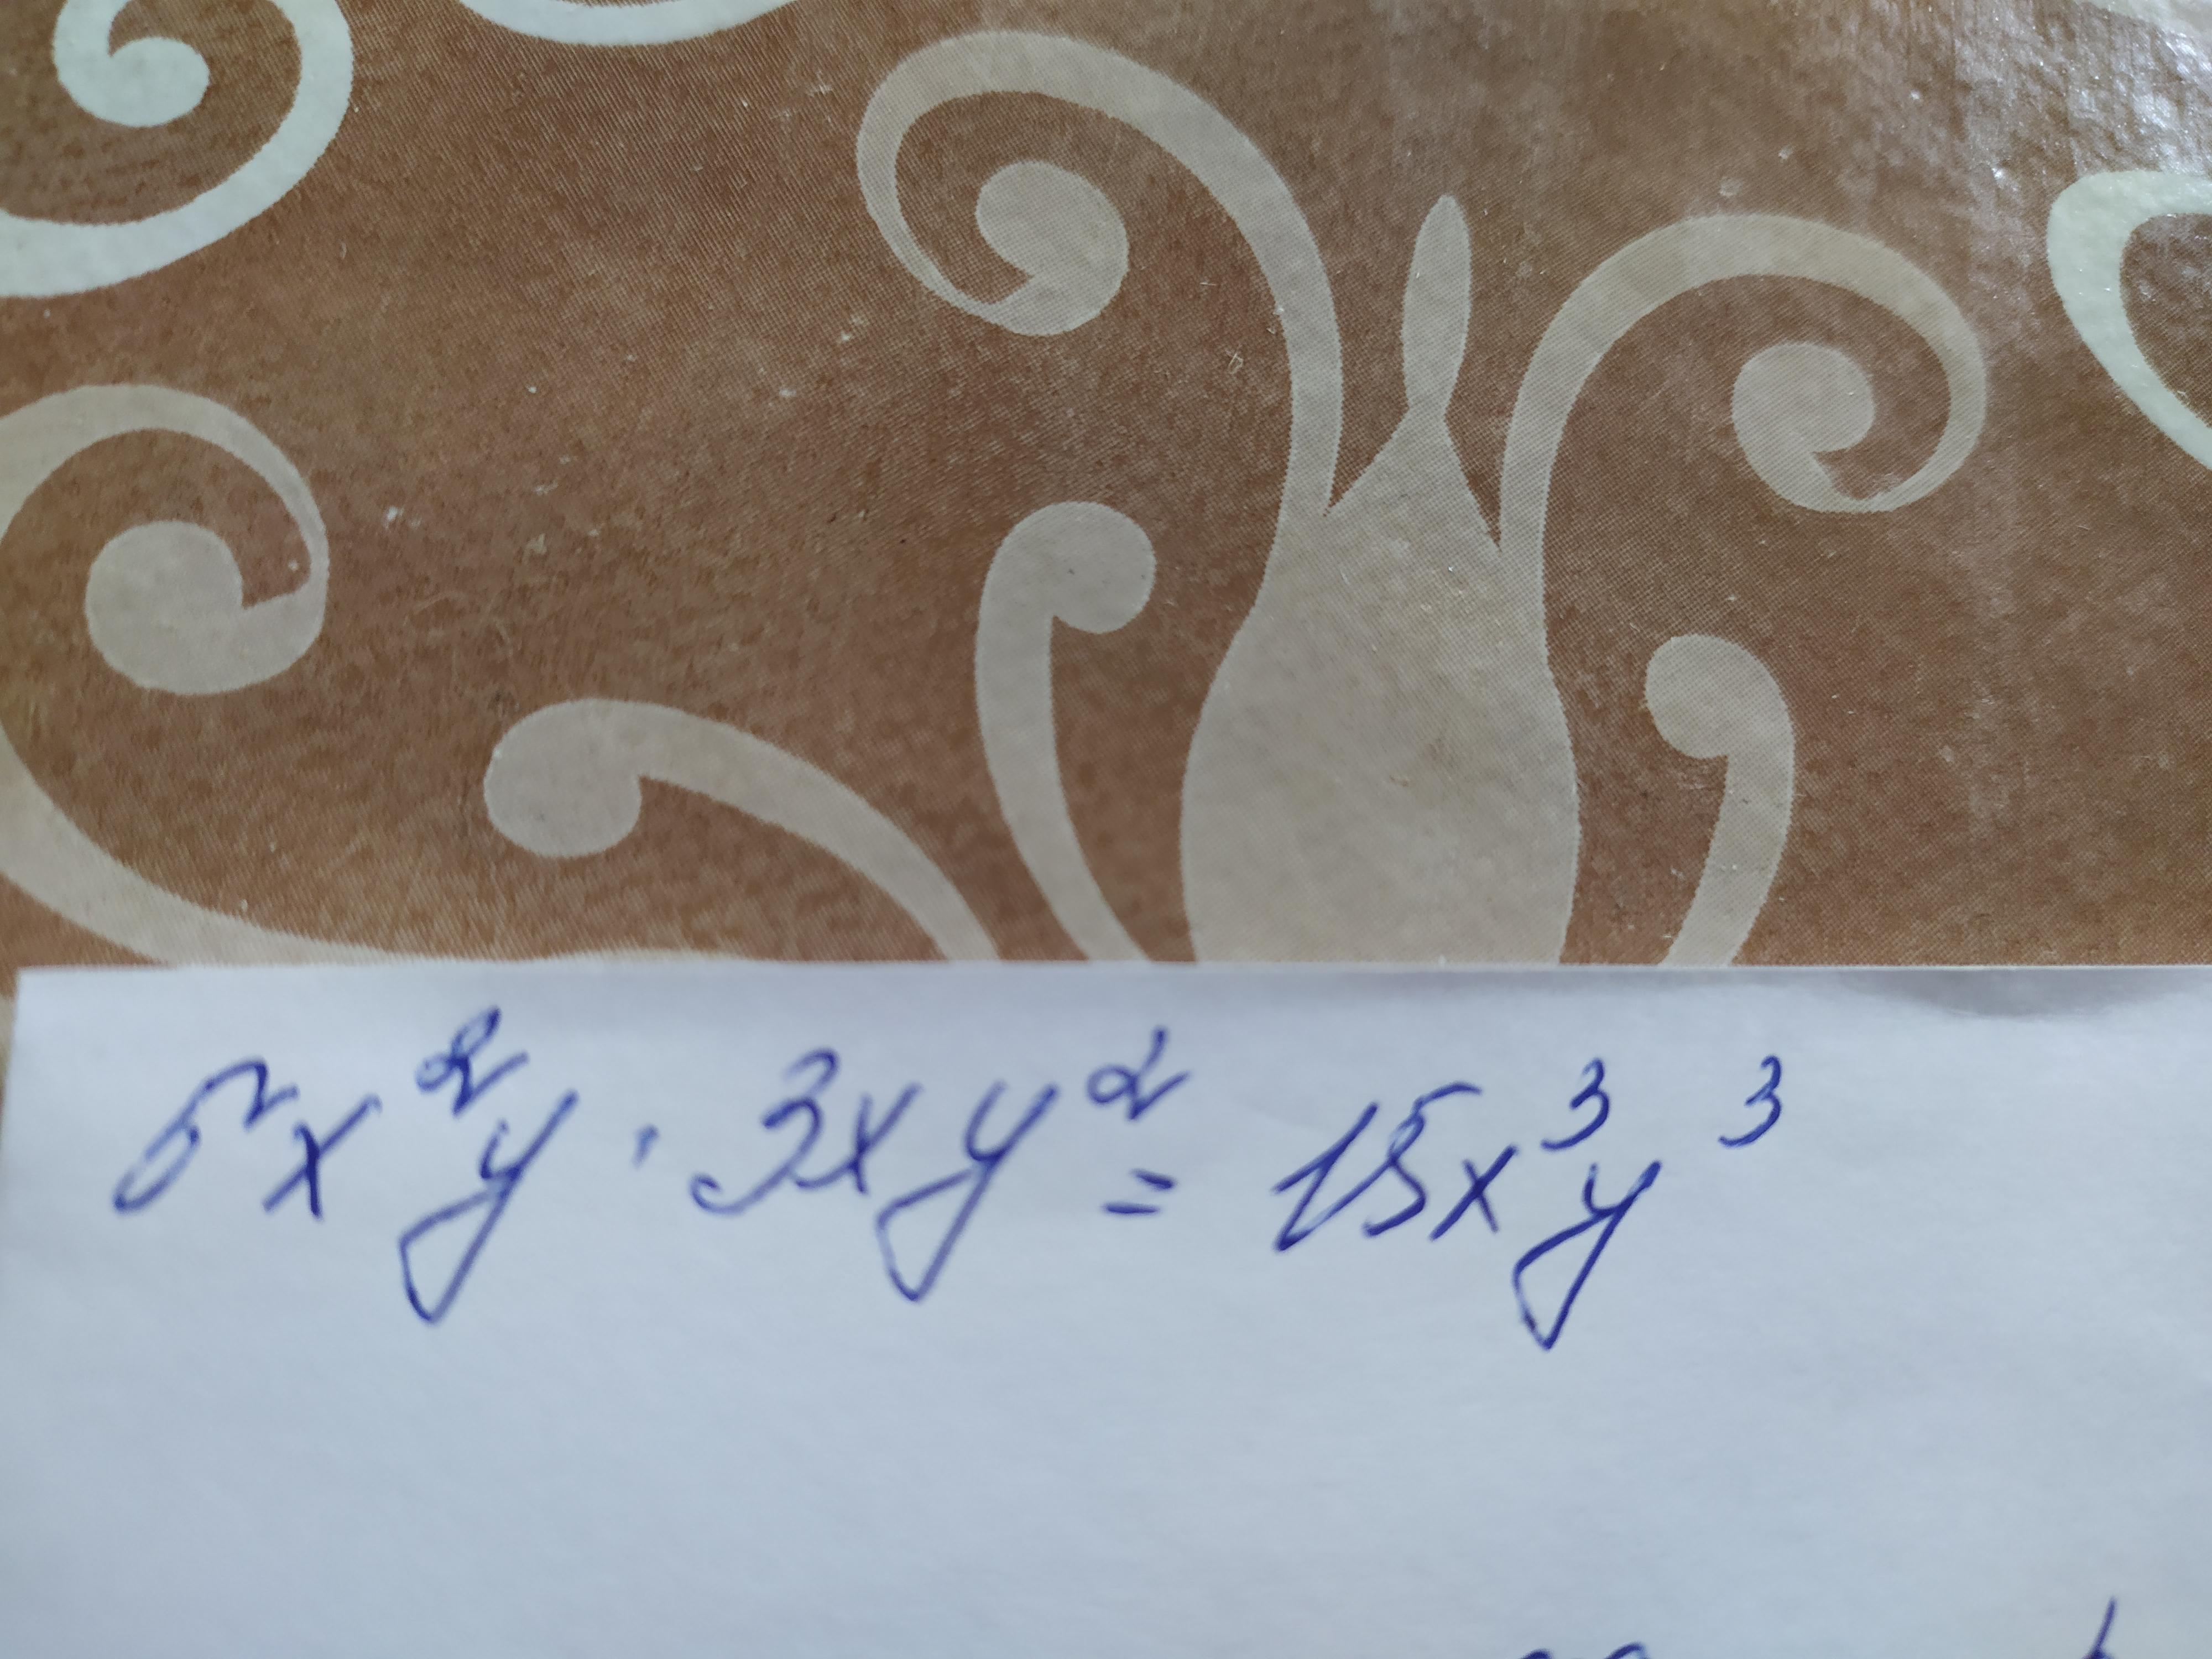 5x²y · 3xy² = 15x³y³